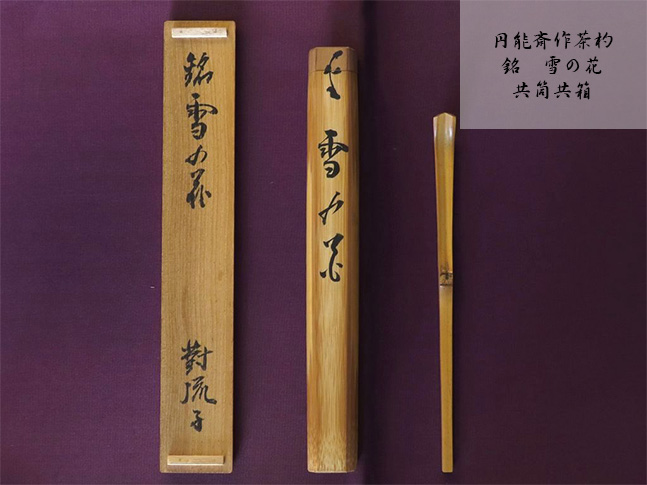 円能斎作茶杓
銘 雪の花
共筒共箱
銘
雪の花
對流子
雪の花